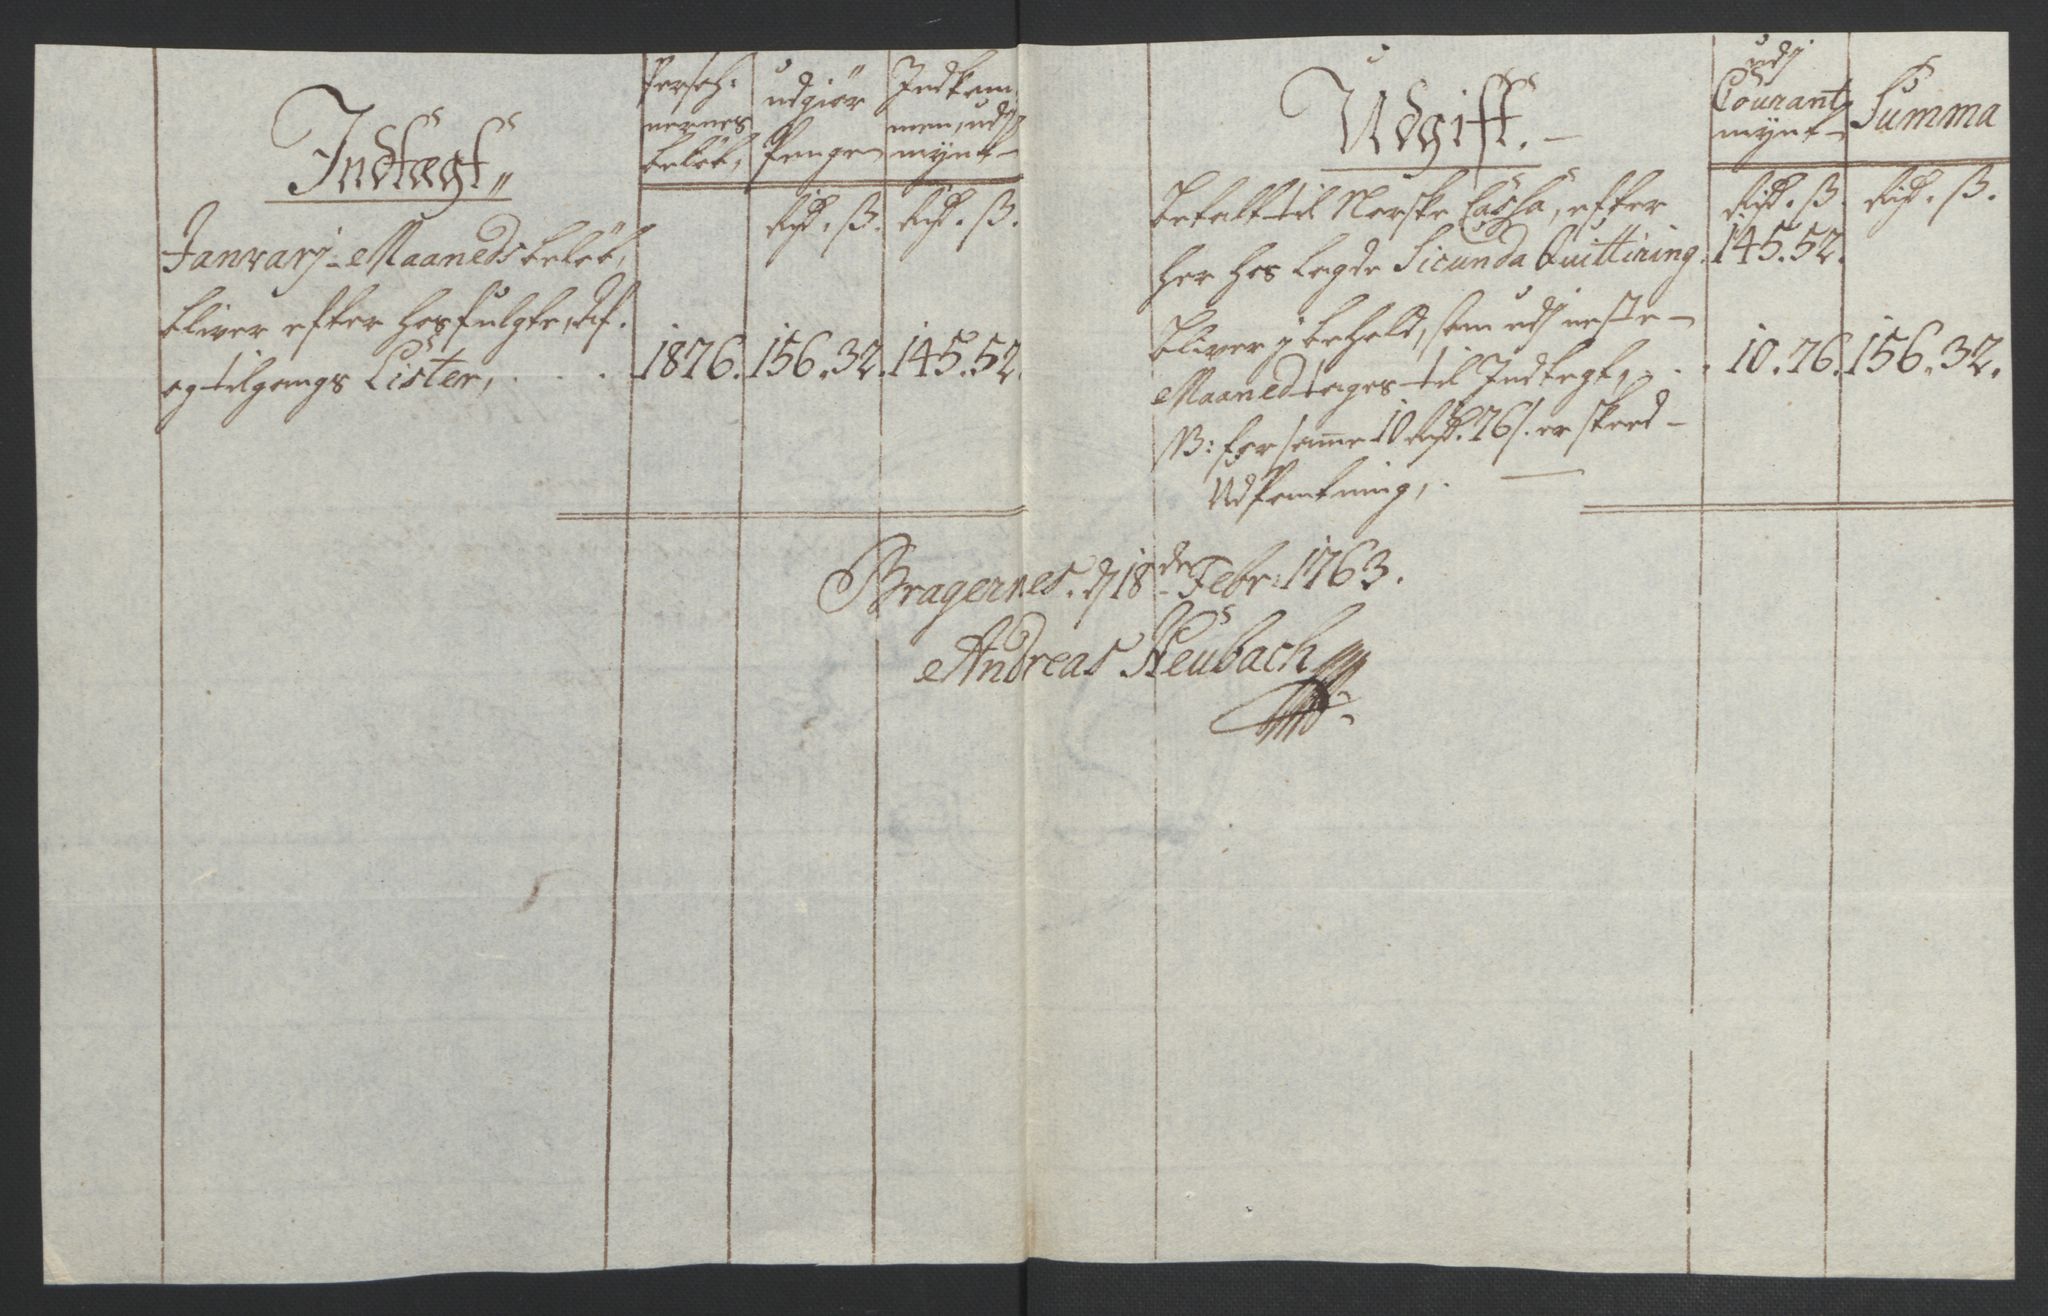 Indtægt
Persoh-
nernes
beløb,
udgiør
Penge
Indkom
men, udj
mynt
Rd. ß. Rd. ß.
Januarj Maaneds beløb,
bliver efter hosfulgte, Af-
og tilgangs Lister, . . . 1876. 156. 32. 145. 52.
Udgift.
udj
Courant
mynt
Summa
Rd. ß. Rd. ß.
Betalt til Norske Cassa, efter
her hos lagde Secunda Quittering. 145. 52.
Bliver j behold, som udj neste
Maaned tages til Indtegt, . . 10. 76. 156. 32.
NB: for samme 10 Rd. 76 ß. er skeed
Udpantning,
Bragernes. d 18de Febr: 1763.
Andreas Heubach